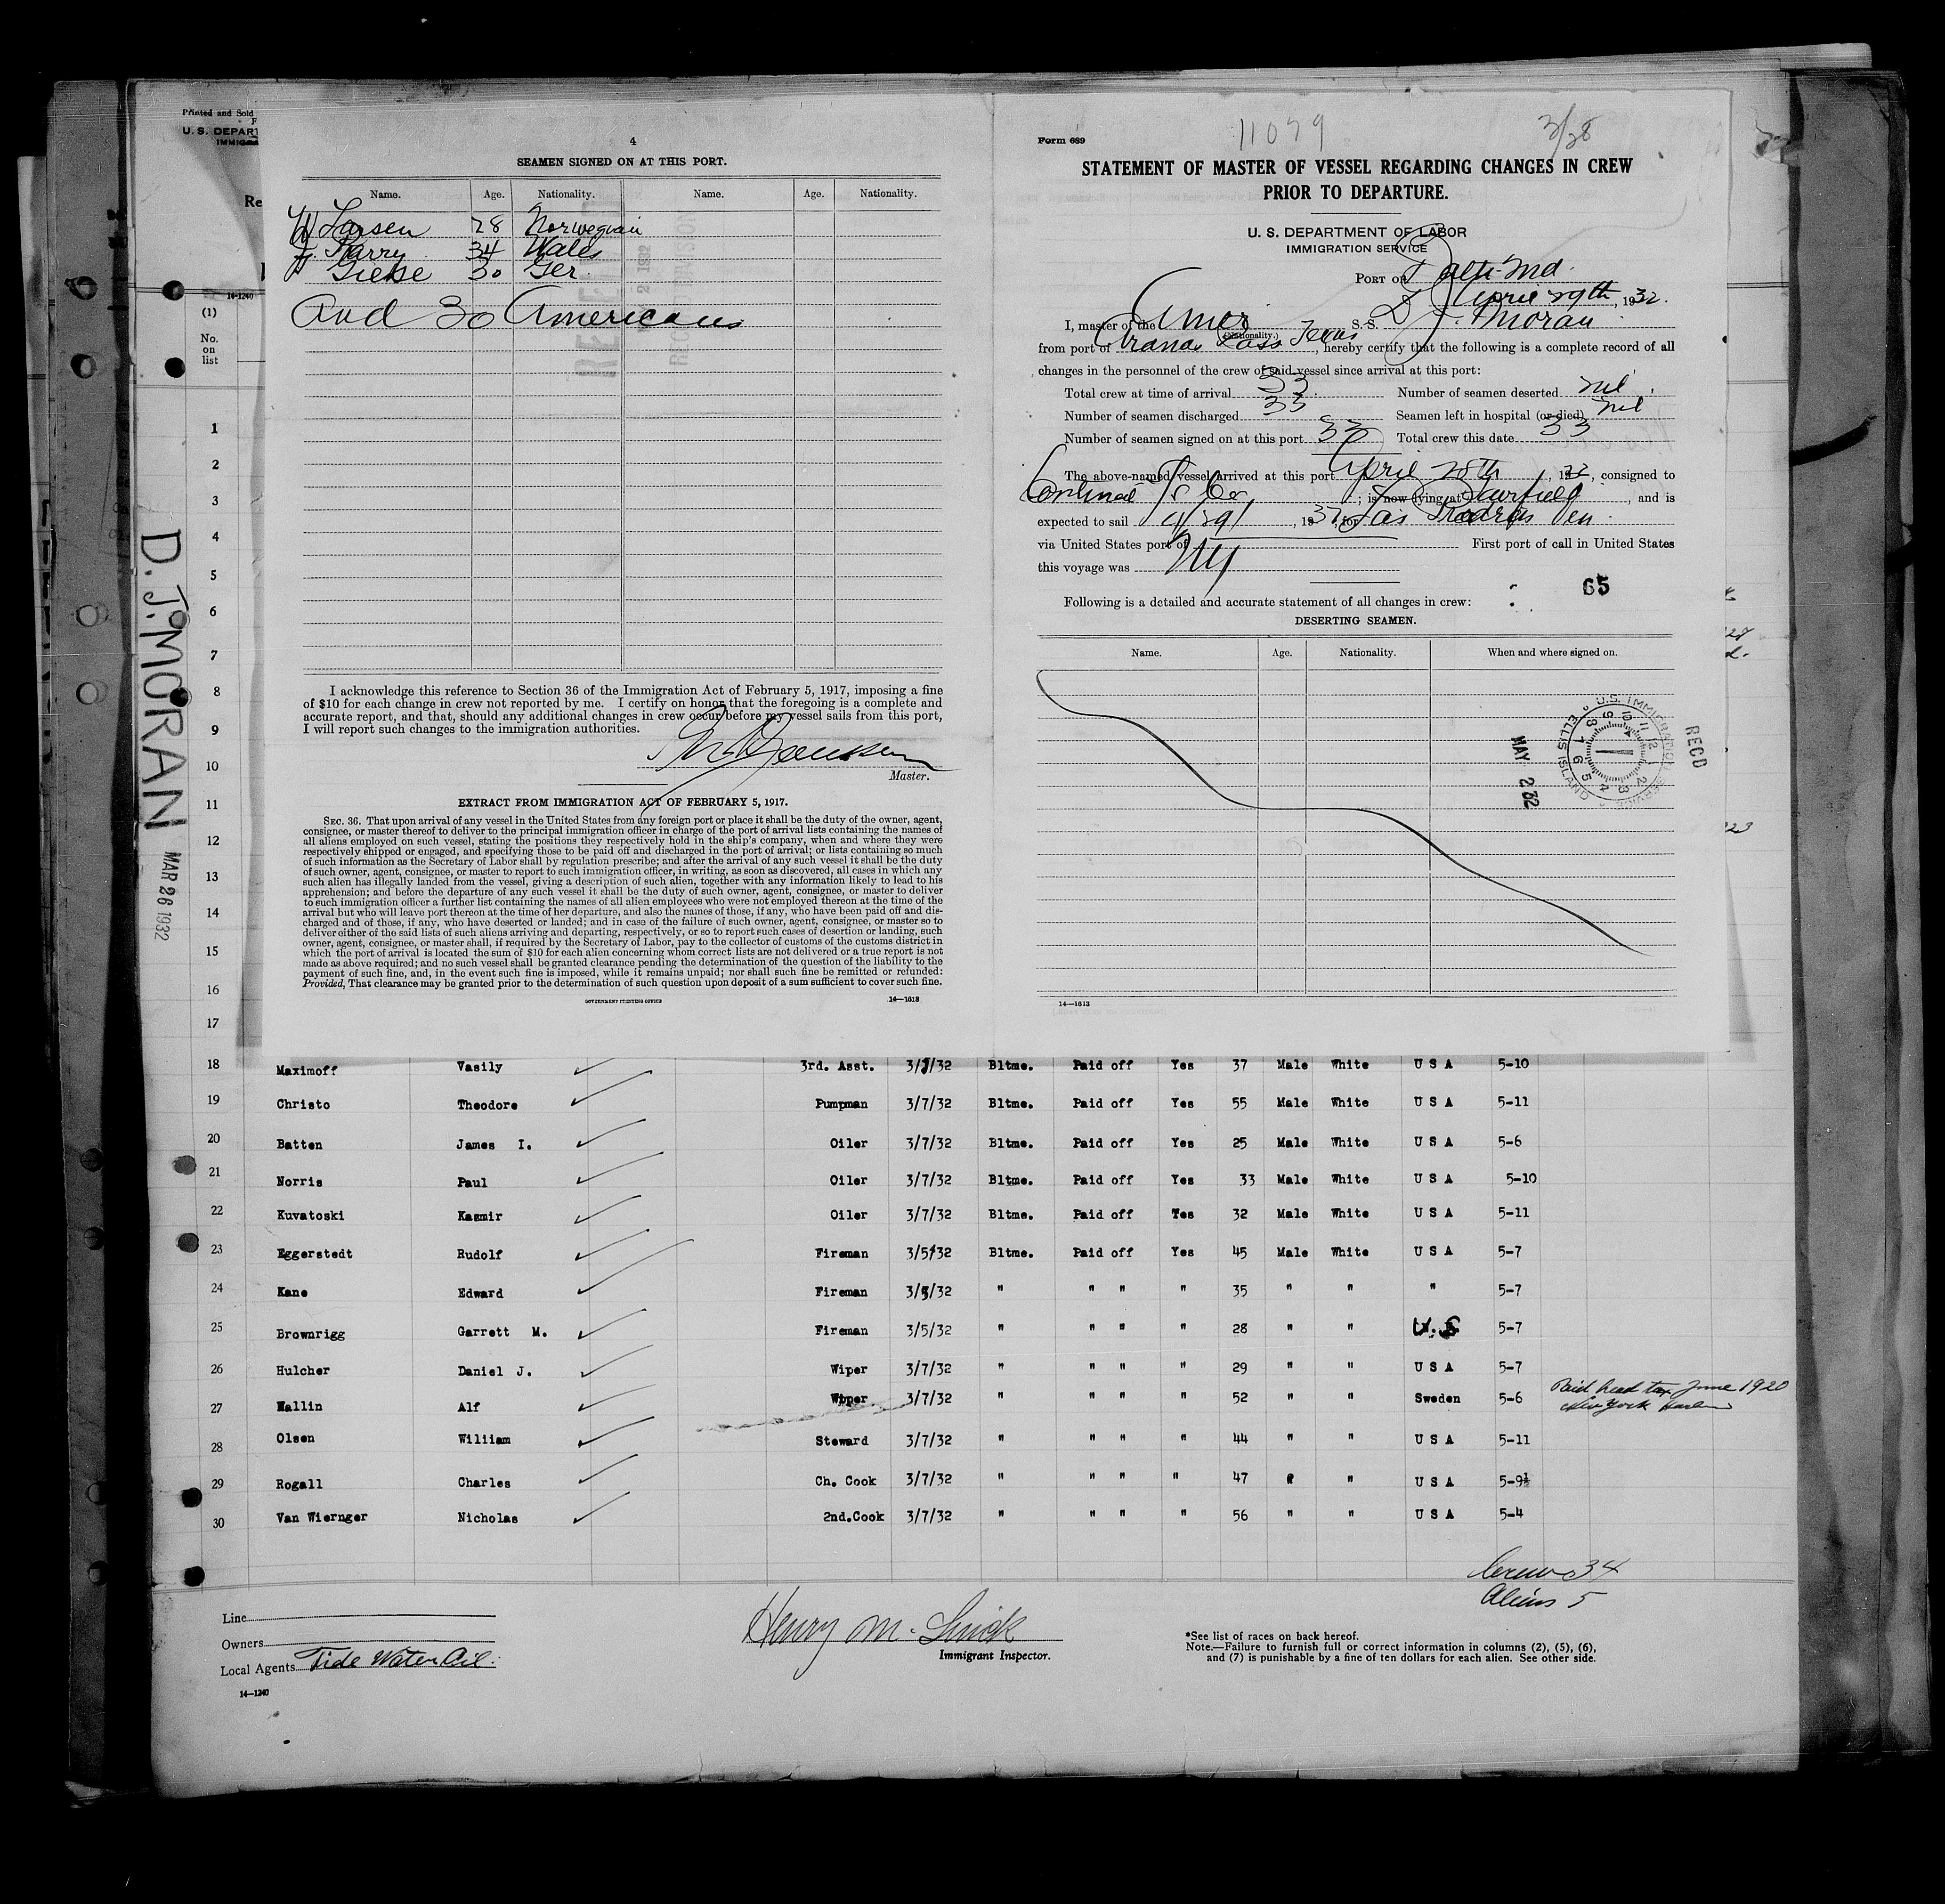 Printed and Sold
U. S. DEPART
IMMIG
Re
14-1240
(1)
No.
on
list
1
2
3
4
5
6
7
8
9
10
11
12
13
14
15
16
17
D. J. MORAN
MAR 26 1932
4
SEAMEN SIGNED ON AT THIS PORT.
Name. Age. Nationality. Name. Age. Nationality.
Larsen 28 Norwegian
Parry 34 Wales
Giese 30 Ger.
And 30 Americans
I acknowledge this reference to Section 36 of the Immigration Act of February 5, 1917, imposing a fine
of $10 for each change in crew not reported by me. I certify on honor that the foregoing is a complete and
accurate report, and that, should any additional changes in crew occur before my vessel sails from this port,
I will report such changes to the immigration authorities.
Master.
EXTRACT FROM IMMIGRATION ACT OF FEBRUARY 5, 1917.
SEC. 36. That upon arrival of any vessel in the United States from any foreign port or place it shall be the duty of the owner, agent,
consignee, or master thereof to deliver to the principal immigration officer in charge of the port of arrival lists containing the names of
all aliens employed on such vessel, stating the positions they respectively hold in the ship's company, when and where they were
respectively shipped or engaged, and specifying those to be paid off and discharged in the port of arrival; or lists containing so much
of such information as the Secretary of Labor shall by regulation prescribe; and after the arrival of any such vessel it shall be the duty
of such owner, agent, consignee, or master to report to such immigration officer, in writing, as soon as discovered, all cases in which any
such alien has illegally landed from the vessel, giving a description of such alien, together with any information likely to lead to his
apprehension; and before the departure of any such vessel it shall be the duty of such owner, agent, consignee, or master to deliver
to such immigration officer a further list containing the names of all alien employees who were not employed thereon at the time of the
arrival but who will leave port thereon at the time of her departure, and also the names of those, if any, who have been paid off and dis-
charged and of those, if any, who have deserted or landed; and in case of the failure of such owner, agent, consignee, or master so to
deliver either of the said lists of such aliens arriving and departing, respectively, or so to report such cases of desertion or landing, such
owner, agent, consignee, or master shall, if required by the Secretary of Labor, pay to the collector of customs of the customs district in
which the port of arrival is located the sum of $10 for each alien concerning whom correct lists are not delivered or a true report is not
made as above required; and no such vessel shall be granted clearance pending the determination of the question of the liability to the
payment of such fine, and, in the event such fine is imposed, while it remains unpaid; nor shall such fine be remitted or refunded:
Provided, That clearance may be granted prior to the determination of such question upon deposit of a sum sufficient to cover such fine.
GOVERNMENT PRINTING OFFICE 14—1613
Form 689 11079 3/28
STATEMENT OF MASTER OF VESSEL REGARDING CHANGES IN CREW
PRIOR TO DEPARTURE.
U. S. DEPARTMENT OF LABOR
IMMIGRATION SERVICE
PORT OF Balto Md.
April 29th, 1932.
I, master of the Amer S.S. D J. Moran
(Nationality.)
from port of Aransas Pass Texas, hereby certify that the following is a complete record of all
changes in the personnel of the crew of said vessel since arrival at this port:
Total crew at time of arrival 33. Number of seamen deserted nil.
Number of seamen discharged 33 Seamen left in hospital (or died) nil
Number of seamen signed on at this port 33 Total crew this date 33
The above-named vessel arrived at this port April 28th, 1932, consigned to
; is now lying at Fairfield, and is
expected to sail 4/29, 1932, for Las Piedras Ven.
via United States port of First port of call in United States
this voyage was NY
65
Following is a detailed and accurate statement of all changes in crew:
DESERTING SEAMEN.
Name. Age. Nationality. When and where signed on.
U.S. IMMIGRATION SERVICE ELLIS ISLAND
REC'D
MAY 2 32
14—1613
18 Maximoff Vasily 3rd. Asst. 3/7/32 Bltme. Paid off Yes 37 Male White U S A 5-10
19 Christo Theodore Pumpman 3/7/32 Bltme. Paid off Yes 55 Male White U S A 5-11
20 Batten James I. Oiler 3/7/32 Bltme. Paid off Yes 25 Male White U S A 5-6
21 Norris Paul Oiler 3/7/32 Bltme. Paid off Yes 33 Male White U S A 5-10
22 Kuvatoski Kazmir Oiler 3/7/32 Bltme. Paid off Yes 32 Male White U S A 5-11
23 Eggerstedt Rudolf Fireman 3/5/32 Bltme. Paid off Yes 45 Male White U S A 5-7
24 Kane Edward Fireman 3/5/32 " " " " 35 " " " 5-7
25 Brownrigg Garrett M. Fireman 3/5/32 " " " " 28 " " U.S 5-7
26 Hulcher Daniel J. Wiper 3/7/32 " " " " 29 " " U S A 5-7
27 Wallin Alf Wiper 3/7/32 " " " " 52 " " Sweden 5-6 Paid head tax June 1920
New York
28 Olsen William Steward 3/7/32 " " " " 44 " " U S A 5-11
29 Rogall Charles Ch. Cook 3/7/32 " " " " 47 " " U S A 5-9½
30 Van Wiernger Nicholas 2nd.Cook 3/7/32 " " " " 56 " " U S A 5-4
Crew 34
Aliens 5
Line
Owners
Local Agents Tide Water Oil.
14—1240
Henry M.
Immigrant Inspector.
*See list of races on back hereof.
Note.—Failure to furnish full or correct information in columns (2), (5), (6),
and (7) is punishable by a fine of ten dollars for each alien. See other side.